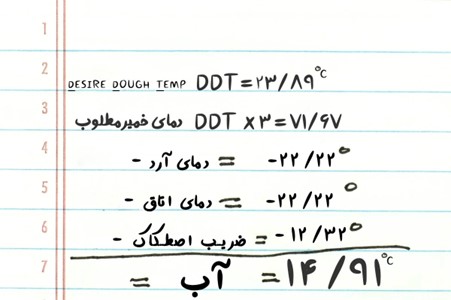 1
2 DESIRE DOUGH TEMP DDT = ۲۳/۸۹°C
3 دمای خمیر مطلوب DDT ×۳ = ۷۱/۶۷
4 - دمای آرد = -۲۲/۲۲°
5 - دمای اتاق = -۲۲/۲۲°
6 - ضریب اصطکاک = -۱۲/۳۲°
7 = آب = ۱۴/۹۱°C